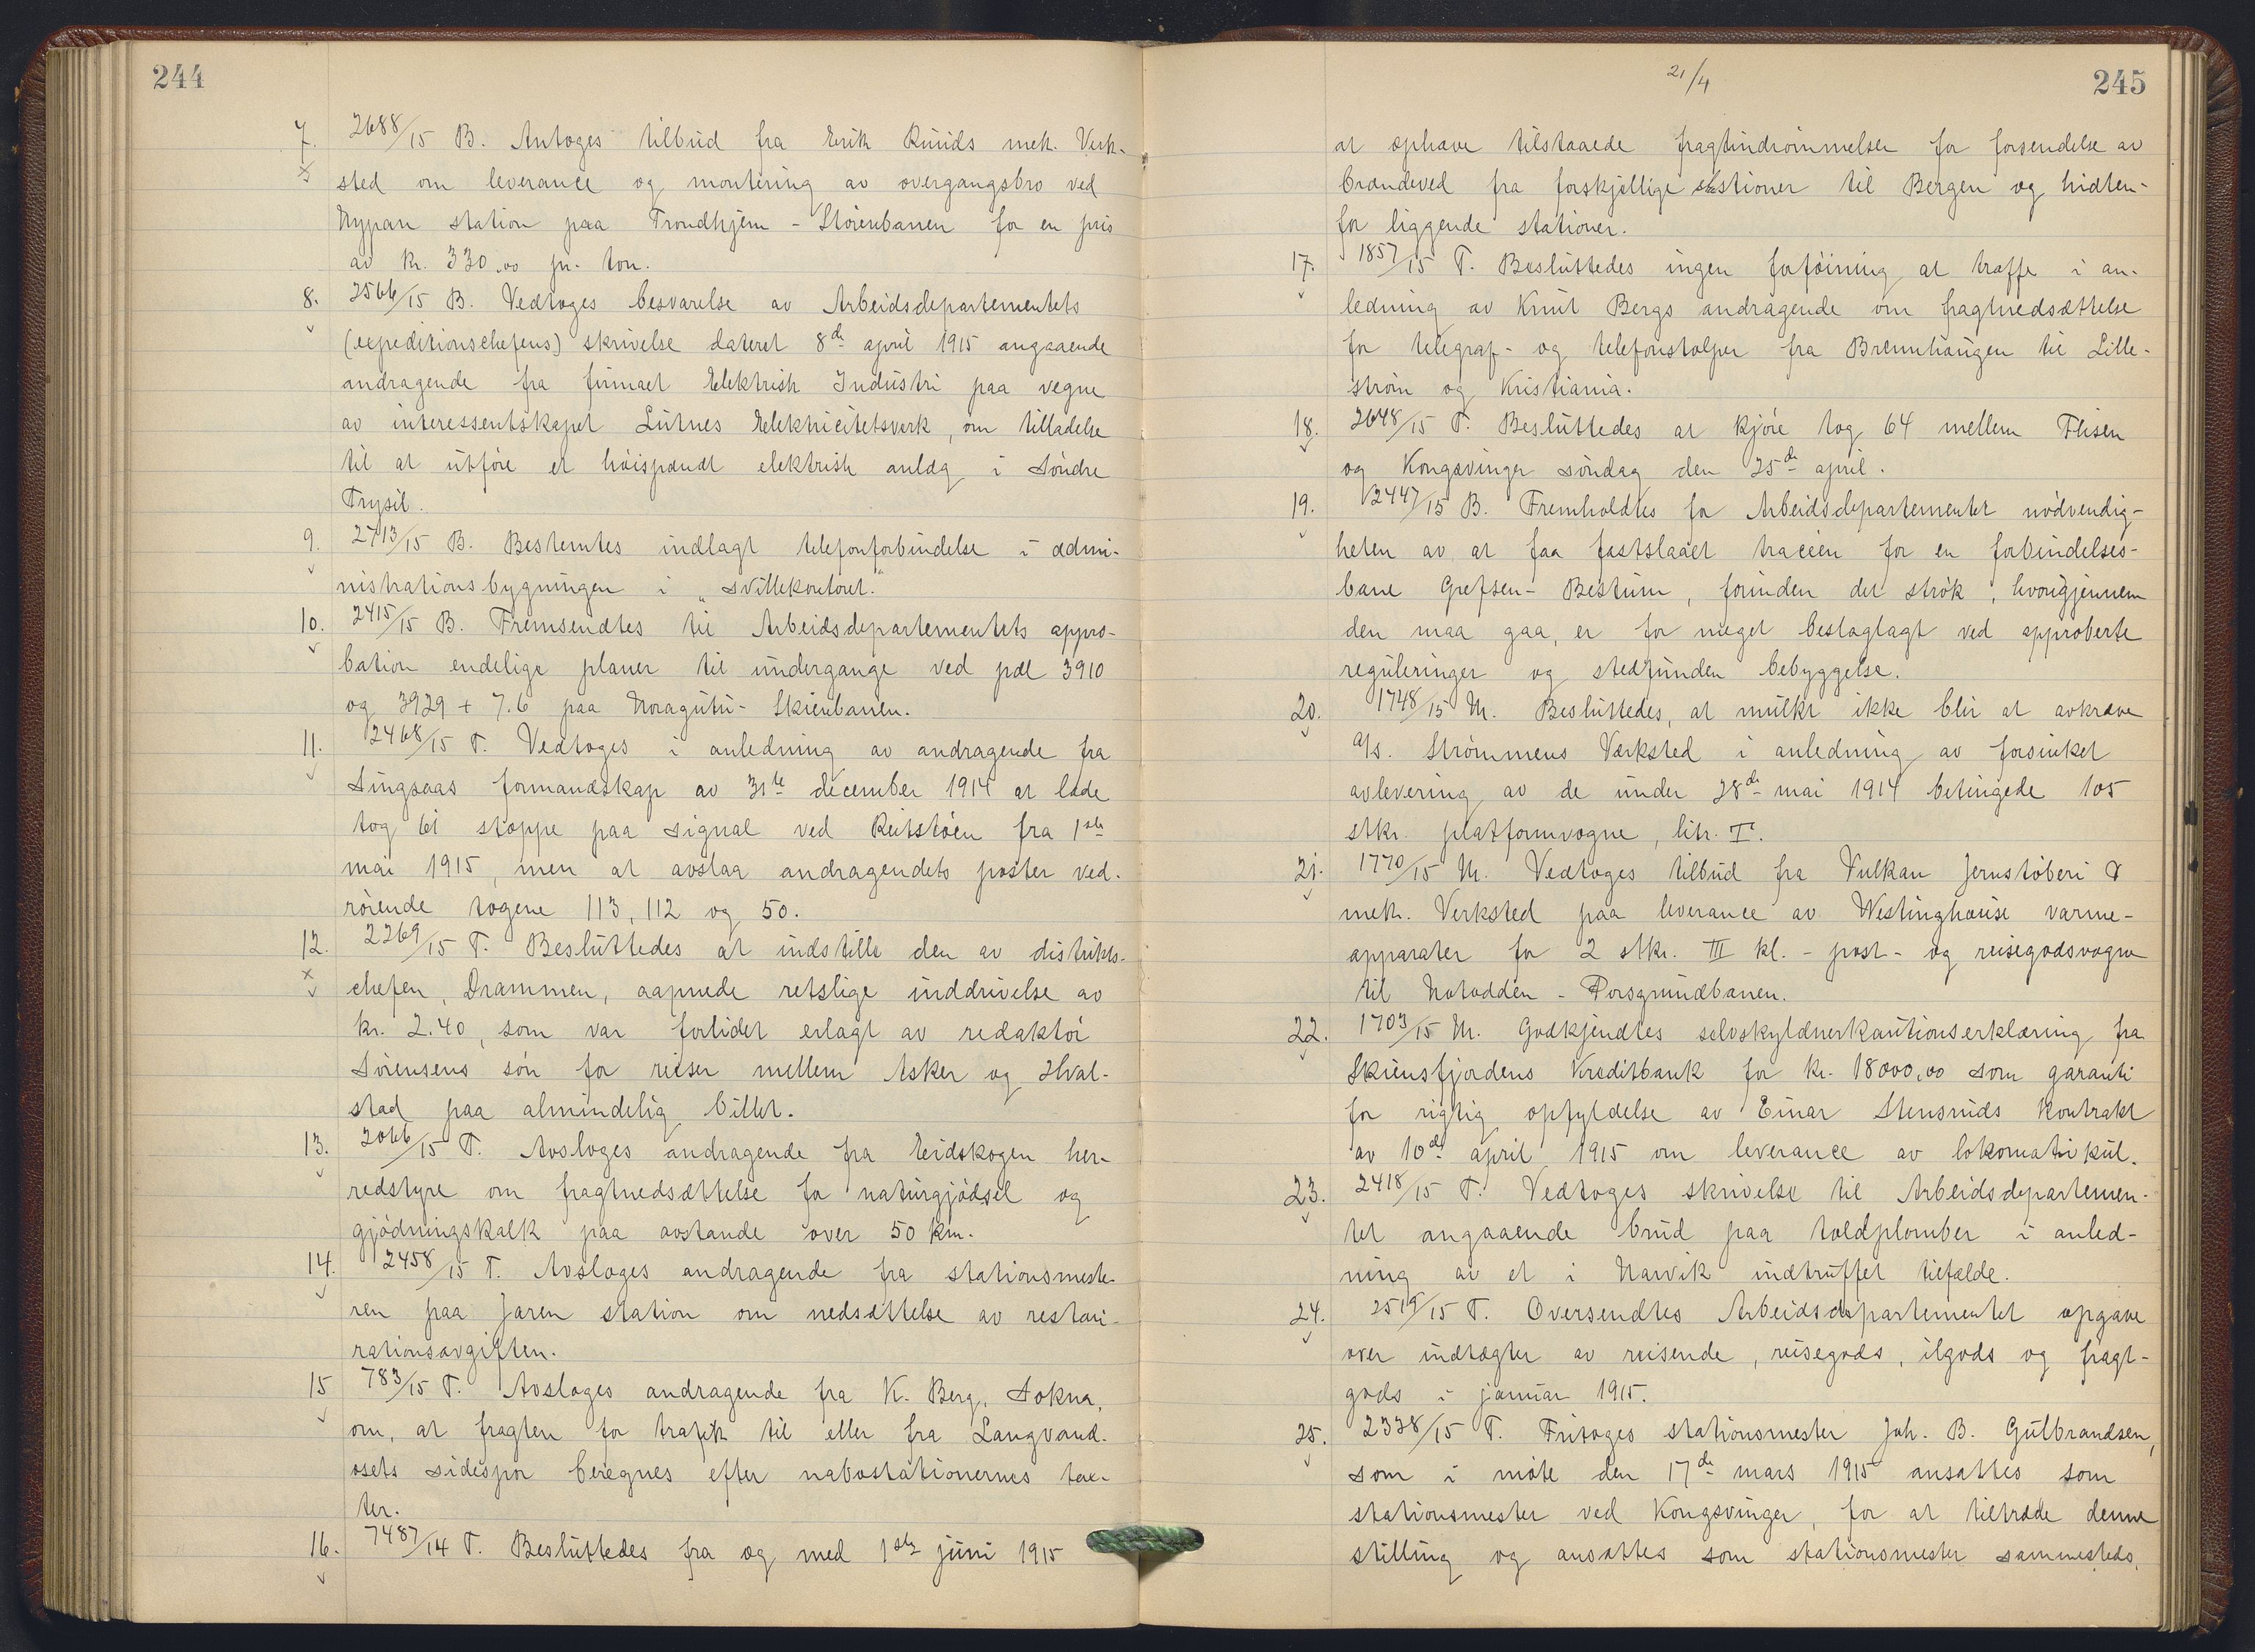 244
7. 2688/15 B. Antoges tilbud fra Erik Ruuds mek. Verk-
x sted om leverance og montering av overgangsbro ved
Nypan station paa Trondhjem - Störenbanen for en pris
av kr. 330.00 pr. ton.
8. 2566/15 B. Vedtoges besvarelse av Arbeidsdepartementets
(expeditionschefens) skrivelse dateret 8de april 1915 angaaende
andragende fra firmaet Elektrisk Industri paa vegne
av interessentskapet Lutnes Elektricitetsverk, om tilladelse
til at utföre et höispændt elektrisk anlæg i Söndre
Trysil.
9. 2713/15 B. Bestemtes indlagt telefonforbindelse i admi-
nistrationsbygningen i „svillekontoret."
10. 2415/15 B. Fremsendtes til Arbeidsdepartementets appro-
bation endelige planer til undergange ved pæl 3910
og 3929 + 7.6 paa Noragutu - Skienbanen.
11. 2468/15 T. Vedtoges i anledning av andragende fra
Singsaas formandskap av 31te december 1914 at lade
tog 61 stoppe paa signal ved Reitstöen fra 1ste
mai 1915, men at avslaa andragendets poster ved-
rörende togene 113, 112 og 50.
12. 2269/15 T. Besluttedes at indstille den av distrikts-
x chefen, Drammen, aapnede retslige inddrivelse av
kr. 2.40, som var forlidet erlagt av redaktör
Sörensens sön for reiser mellem Asker og Hval-
stad paa almindelig billet.
13. 2066/15 T. Avsloges andragende fra Eidskogen her-
redstyre om fragtnedsættelse for naturgjödsel og
gjödningskalk paa avstande over 50 km.
14. 2458/15 T. Avsloges andragende fra stationsmeste-
ren paa Jaren station om nedsættelse av restau-
rationsavgiften.
15 783/15 T. Avsloges andragende fra K. Berg, Sokna,
om, at fragten for trafik til eller fra Langvand-
osets sidespor beregnes efter nabostationernes tax-
ter.
16. 7487/14 T. Besluttedes fra og med 1ste juni 1915
21/4
245
at ophæve tilstaaede fragtindrömmelser for forsendelse av
brændeved fra forskjellige stationer til Bergen og hidten-
for liggende stationer.
17. 1857/15 T. Besluttedes ingen forföining at træffe i an-
ledning av Knut Bergs andragende om fragtnedsættelse
for telegraf- og telefonstolper fra Brennhaugen til Lille-
ström og Kristiania.
18. 2648/15 T. Besluttedes at kjöre tog 64 mellem Flisen
og Kongsvinger söndag den 25de april.
19. 2447/15 B. Fremholdtes for Arbeidsdepartementet nödvendig-
heten av at faa fastslaaet traceen for en forbindelses-
bane Grefsen - Bestum, forinden det strök, hvorigjennem
den maa gaa, er for meget beslaglagt ved approberte
reguleringer og stedfunden bebyggelse.
20. 1748/15 M. Besluttedes, at mulkt ikke blir at avkræve
a/s. Strömmens Værksted i anledning av forsinket
avlevering av de under 28de mai 1914 betingede 105
stkr. platformvogne, litr. T.
21. 1770/15 M. Vedtoges tilbud fra Vulkan Jernstöberi &
mek. Verksted paa leverance av Westinghouse varme-
apparater for 2 stkr. III kl. - post- og reisegodsvogne
til Notodden - Porsgrundbanen.
22. 1703/15 M. Godkjendtes selvskyldnerkautionserklæring fra
Skiensfjordens Kreditbank for kr. 18000,00 som garanti
for rigtig opfyldelse av Einar Stensruds kontrakt
av 10de april 1915 om leverance av lokomotivkul.
23. 2418/15 T. Vedtoges skrivelse til Arbeidsdepartemen-
tet angaaende brud paa toldplomber i anled-
ning av et i Narvik indtruffet tilfælde.
24. 2519/15 T. Oversendtes Arbeidsdepartementet opgave
over indtægter av reisende, reisegods, ilgods og fragt-
gods i januar 1915.
25. 2338/15 T. Fritoges stationsmester Joh. B. Gulbrandsen,
som i möte den 17de mars 1915 ansattes som
stationsmester ved Kongsvinger, for at tiltræde denne
stilling og ansattes som stationsmester sammesteds,